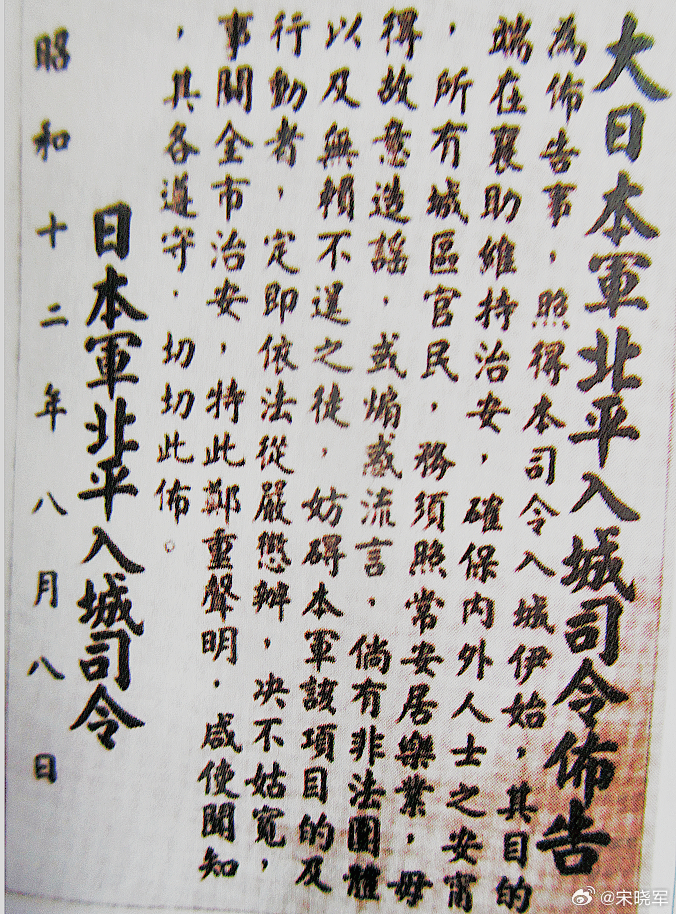 大日本軍北平入城司令佈告
為佈告事，照得本司令入城伊始，其目的
端在襄助維持治安，確保内外人士之安甯
，所有城區官民，務須照常安居樂業，毋
得故意造謠，或煽惑流言，倘有非法團體
以及無賴不逞之徒，妨碍本軍該項目的及
行動者，定即依法從嚴懲辦，决不姑寬，
事關全市治安，特此鄭重聲明，咸使聞知
，其各遵守，切切此佈。
日本軍北平入城司令
昭和十二年八月八日
@宋晓军